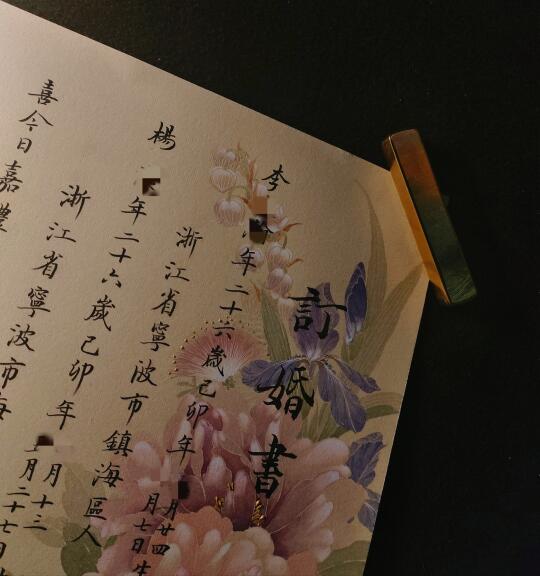 訂婚書
李
年二十六歲己卯年
月廿四
浙江省寧波市鎮海區人
月七日生
楊
年二十六歲己卯年
月十三
浙江省寧波市
月二十七日
喜今日嘉禮